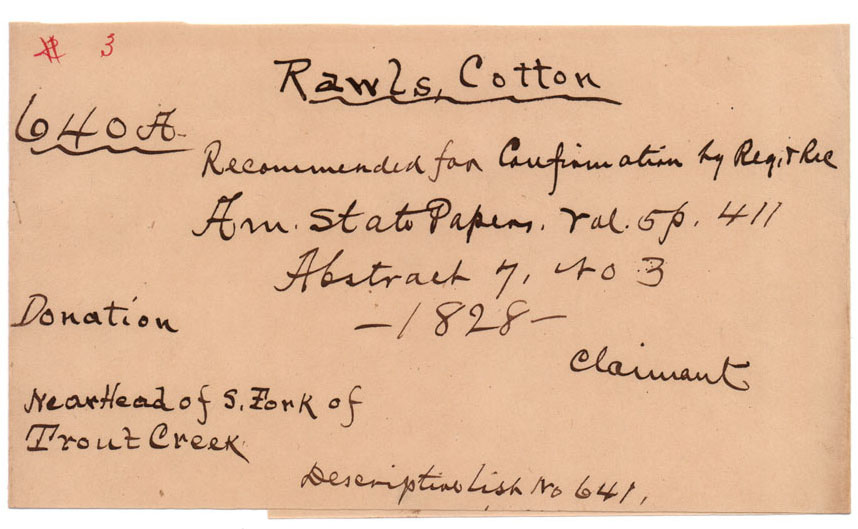 # 3
Rawls, Cotton
640 A-
Recommended for Confirmation by Reg. & Rec
Am. State Papers. Vol. 5 p. 411
Abstract 7, No 3
Donation
- 1828 -
Claimant
Near Head of S. Fork of
Trout Creek
Descriptive List No 641.